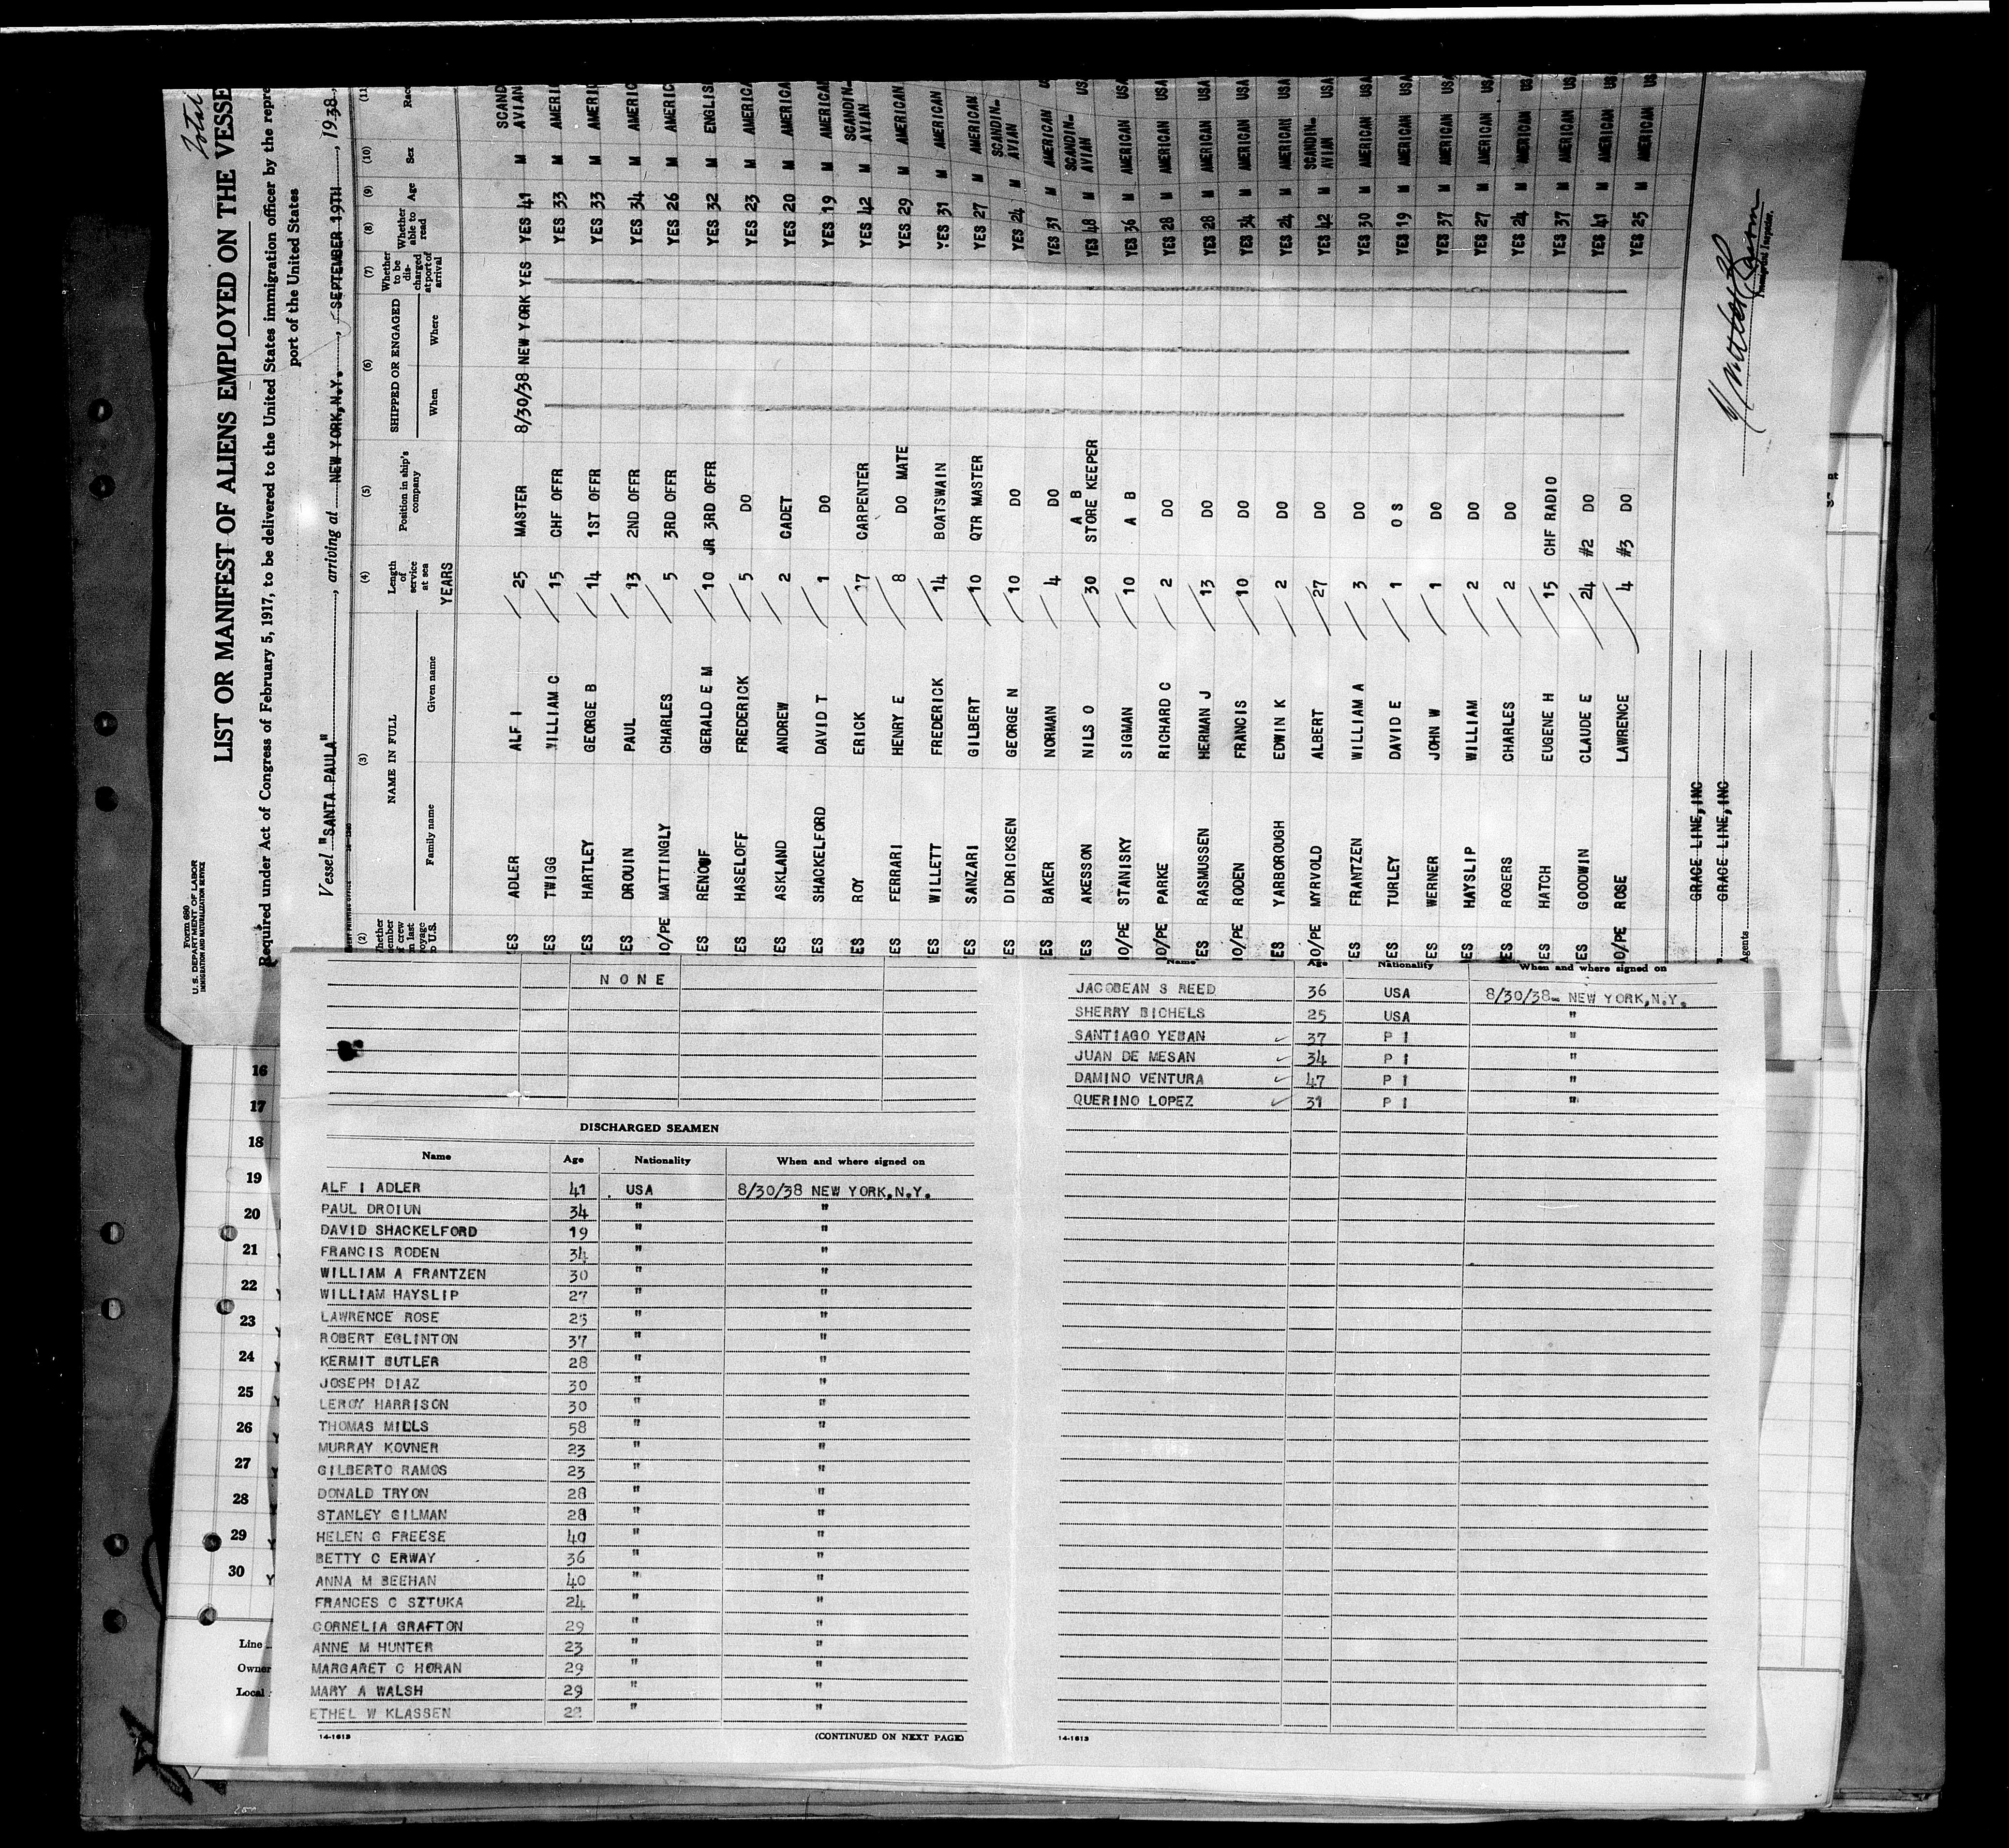 Form 680
U. S. DEPARTMENT OF LABOR
IMMIGRATION AND NATURALIZATION SERVICE
LIST OR MANIFEST OF ALIENS EMPLOYED ON THE VESSE
Required under Act of Congress of February 5, 1917, to be delivered to the United States immigration officer by the repre
port of the United States
Vessel "SANTA PAULA", arriving at NEW YORK,N.Y., SEPTEMBER 19TH, 1938,
(2) (3) (4) (5) (6) (7) (8) (9) (10) (11
NAME IN FULL
Family name Given name
Length of service at sea
YEARS
Position in ship's company
SHIPPED OR ENGAGED
When Where
Whether to be discharged at port of arrival
Whether able to read
Age Sex Rac
ES ADLER ALF I 25 MASTER 8/30/38 NEW YORK YES YES 41 M SCAND AVIAN
ES TWIGG WILLIAM C 15 CHF OFFR YES 33 M AMERIC
ES HARTLEY GEORGE B 14 1ST OFFR YES 33 M AMERIC
ES DROUIN PAUL 13 2ND OFFR YES 34 M AMERIC
O/PE MATTINGLY CHARLES 5 3RD OFFR YES 26 M AMERIC
ES RENOUF GERALD E M 10 JR 3RD OFFR YES 32 M ENGLIS
ES HASELOFF FREDERICK 5 DO YES 23 M AMERICA
ES ASKLAND ANDREW 2 CADET YES 20 M AMERICA
ES SHACKELFORD DAVID T 1 DO YES 19 M AMERICAN
ES ROY ERICK 17 CARPENTER YES 42 M SCANDIN- AVIAN
ES FERRARI HENRY E 8 DO MATE YES 29 M AMERICAN
ES WILLETT FREDERICK 14 BOATSWAIN YES 31 M AMERICAN
ES SANZARI GILBERT 10 QTR MASTER YES 27 M AMERICAN
ES DIDRICKSEN GEORGE N 10 DO YES 24 M SCANDIN- AVIAN
ES BAKER NORMAN 4 DO YES 31 M AMERICAN U
ES AKESSON NILS O 30 A B STORE KEEPER YES 48 M SCANDIN- AVIAN US
O/PE STANISKY SIGMAN 10 A B YES 36 M AMERICAN USA
O/PE PARKE RICHARD C 2 DO YES 28 M AMERICAN USA
ES RASMUSSEN HERMAN J 13 DO YES 28 M AMERICAN USA
O/PE RODEN FRANCIS 10 DO YES 34 M AMERICAN USA
ES YARBOROUGH EDWIN K 2 DO YES 24 M AMERICAN USA
O/PE MYRVOLD ALBERT 27 DO YES 42 M SCANDIN- AVIAN USA
ES FRANTZEN WILLIAM A 3 DO YES 30 M AMERICAN USA
ES TURLEY DAVID E 1 O S YES 19 M AMERICAN USA
ES WERNER JOHN W 1 DO YES 37 M AMERICAN USA
ES HAYSLIP WILLIAM 2 DO YES 27 M AMERICAN USA
ES ROGERS CHARLES 2 DO YES 24 M AMERICAN USA
ES HATCH EUGENE H 15 CHF RADIO YES 37 M AMERICAN US
ES GOODWIN CLAUDE E 24 #2 DO YES 41 M AMERICAN US
O/PE ROSE LAWRENCE 4 #3 DO YES 25 M AMERICAN US
GRACE LINE,INC
GRACE LINE,INC
Agents
Immigrant Inspector.
16
17
18
19
20
21
22
23
24
25
26
27
28
29
30
Line
Owner
Local
NONE
DISCHARGED SEAMEN
Name Age Nationality When and where signed on
ALF I ADLER 41 USA 8/30/38 NEW YORK,N.Y.
PAUL DROIUN 34 " "
DAVID SHACKELFORD 19 " "
FRANCIS RODEN 34 " "
WILLIAM A FRANTZEN 30 " "
WILLIAM HAYSLIP 27 " "
LAWRENCE ROSE 25 " "
ROBERT EGLINTON 37 " "
KERMIT BUTLER 28 " "
JOSEPH DIAZ 30 " "
LEROY HARRISON 30 " "
THOMAS MILLS 58 " "
MURRAY KOVNER 23 " "
GILBERTO RAMOS 23 " "
DONALD TRYON 28 " "
STANLEY GILMAN 28 " "
HELEN G FREESE 40 " "
BETTY C ERWAY 36 " "
ANNA M BEEHAN 40 " "
FRANCES C SZTUKA 24 " "
CORNELIA GRAFTON 29 " "
ANNE M HUNTER 23 " "
MARGARET C HORAN 29 " "
MARY A WALSH 29 " "
ETHEL W KLASSEN 22 " "
14-1613 (CONTINUED ON NEXT PAGE)
Name Age Nationality When and where signed on
JACOBEAN S REED 36 USA 8/30/38- NEW YORK,N.Y.
SHERRY BICHELS 25 USA "
SANTIAGO YEBAN 37 P I "
JUAN DE MESAN 34 P I "
DAMINO VENTURA 47 P I "
QUERINO LOPEZ 31 P I "
14-1613